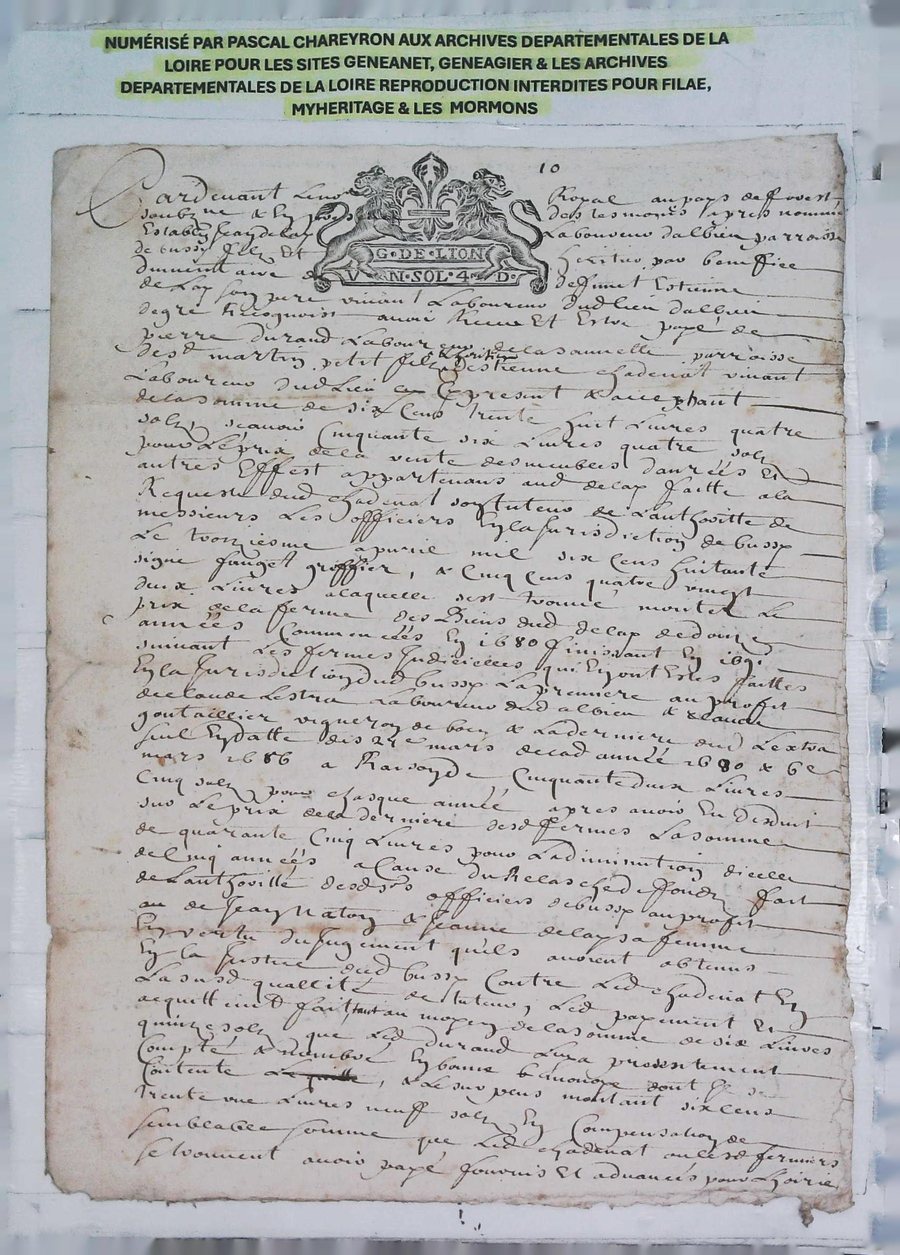 NUMÉRISÉ PAR PASCAL CHAREYRON AUX ARCHIVES DEPARTEMENTALES DE LA
LOIRE POUR LES SITES GENEANET, GENEAGIER & LES ARCHIVES
DEPARTEMENTALES DE LA LOIRE REPRODUCTION INTERDITES POUR FILAE,
MYHERITAGE & LES MORMONS
10
G·DE·LION
V N·SOL·4·D·
Pardevant Royal au pays de fforest,
soubzne & des tesmoings apres nommé
Estably Jean delay Laboureur dalbieu parroisse
de bussy filz et heritier par beneffice
dinventaire deffunct Estienne
de Lay son pere vivant Laboureur dud lieu dalbieu
degré Recognoist avoir Receu Et Estre payé de
pierre durand Laboureur parroisse
de st martin petit filz & heritier destienne chadenat vivant
Laboureur dud Lieu present & acceptant
de la somme de six Cens trente huit Livres quatre
solz, scavoir Cinquante six Livres quatre solz
pour Le prix de la vente des meubles danrées Et
autres Effest appartenans aud delay faitte a la
Requeste dud chadenat son tuteur de Lauthoritté de
messieurs Les officiers En la Jurisdiction de bussy
Le troiziesme apvril mil six Cens huitante
signé fauget greffier, & Cinq Cens quatre vingt
deux Livres a laquelle sest trouvé monter Le
prix de la ferme des Biens dud delay de douze
années Commencées En 1680 finissant En 1691
suivant Les fermes Judicielles qui En ont Estés faittes
En la Jurisdiction dud bussy La premiere au profit
de claude Lestra Laboureur dud albieu & claude
goutaillier vigneron de boen & La derniere dud Lextra
seul En datte des 22e mars de lad année 1680 & 6e
mars 1686 a Raison de Cinquante deux Livres
Cinq solz pour chasque année apres avoir En desduit
sur Le prix de la derniere desd fermes La somme
de quarante Cinq Livres pour La diminution dicelle
de Cinq années a Cause du Relasche de ffondz fait
de Lauthoritté desd srs officiers de bussy au profit
de Jean & Jeanne delay sa femme
En vertu du Jugement quils avoient obtenus
En la Justice dud bussy Contre Led chadenat En
La susd quallité de tuteur, Led payement Et
acquittement fait, tant au moyen de la somme de six Livres
quinze solz que Led durand Luy a presentement
Compté & nombré En bonne monnoye dont
Contente, & Le surplus montant six Cens
trente une Livres neuf solz En Compensation de
semblable somme que Led chadenat ou lesd fermiers
se trouvent avoir payé fournis et advancés pour Lhoirie